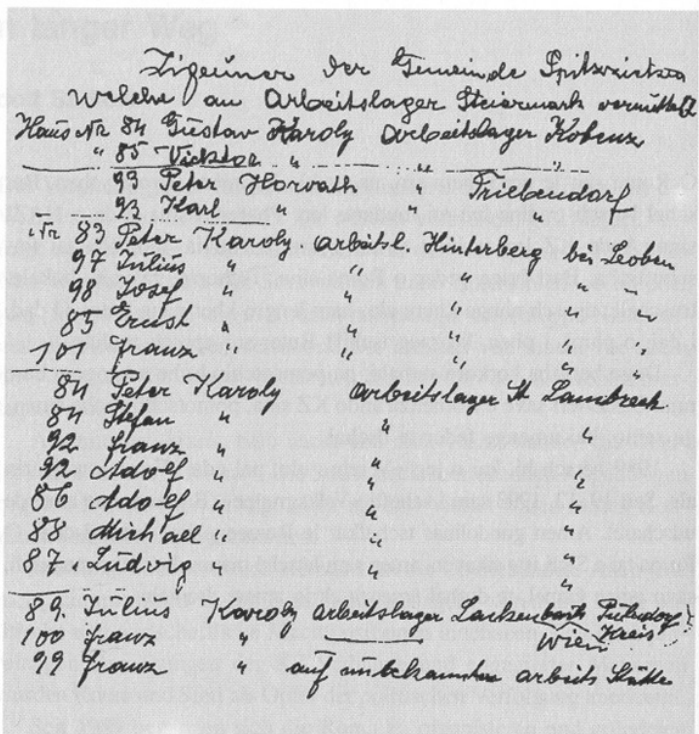 Zigeuner der Gemeinde Spitzzicken
welche an Arbeitslager Steiermark vermittelt
Haus Nr 84 Gustav Karoly Arbeitslager Kobenz
" 85 Vicktor " " "
99 Peter Horvath " Triebendorf
93 Karl " " "
Nr. 83 Peter Karoly Arbeitsl. Hinterberg bei Leoben
97 Julius " " " "
98 Josef " " " "
85 Ernst " " " "
101 franz " " " "
84 Peter Karoly Arbeitslager St Lambrech
84 Stefan " " "
92 franz " " "
92 Adolf " " "
86 Adolf " " "
88 Michael " " "
87 Ludvig " " "
89. Julius Karoly Arbeitslager Lackenbach
100 franz " Wien Kreis
99 franz " auf unbekannten arbeits Stätte